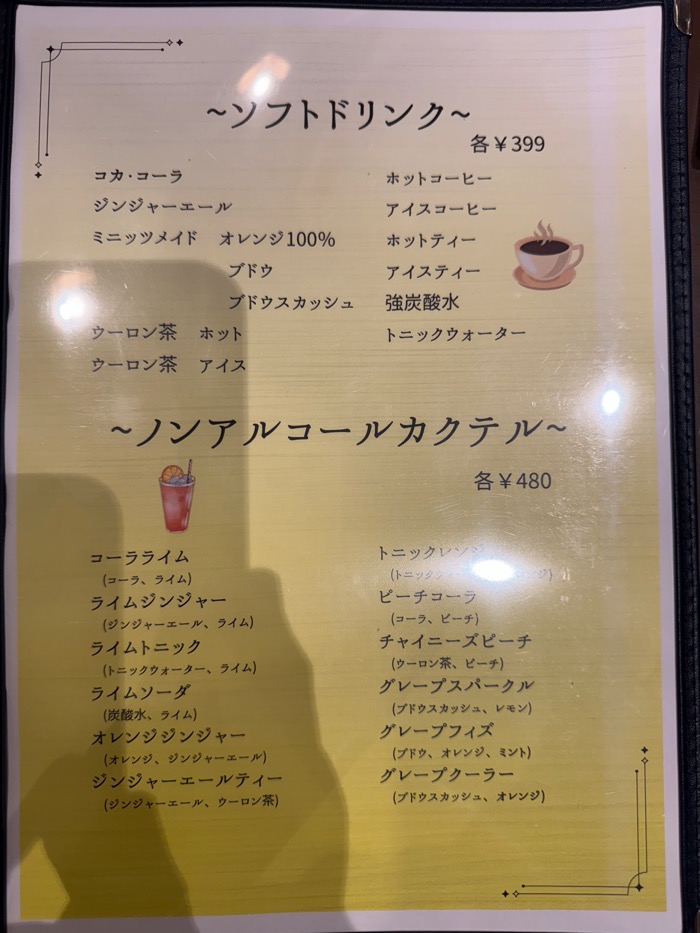 ~ソフトドリンク~
各￥399
コカ・コーラ
ジンジャーエール
ミニッツメイド オレンジ100%
ブドウ
ブドウスカッシュ
ウーロン茶 ホット
ウーロン茶 アイス
ホットコーヒー
アイスコーヒー
ホットティー
アイスティー
強炭酸水
トニックウォーター
~ノンアルコールカクテル~
各￥480
コーラライム
(コーラ、ライム)
ライムジンジャー
(ジンジャーエール、ライム)
ライムトニック
(トニックウォーター、ライム)
ライムソーダ
(炭酸水、ライム)
オレンジジンジャー
(オレンジ、ジンジャーエール)
ジンジャーエールティー
(ジンジャーエール、ウーロン茶)
トニックレンジ
ピーチコーラ
(コーラ、ピーチ)
チャイニーズピーチ
(ウーロン茶、ピーチ)
グレープスパークル
(ブドウスカッシュ、レモン)
グレープフィズ
(ブドウ、オレンジ、ミント)
グレープクーラー
(ブドウスカッシュ、オレンジ)